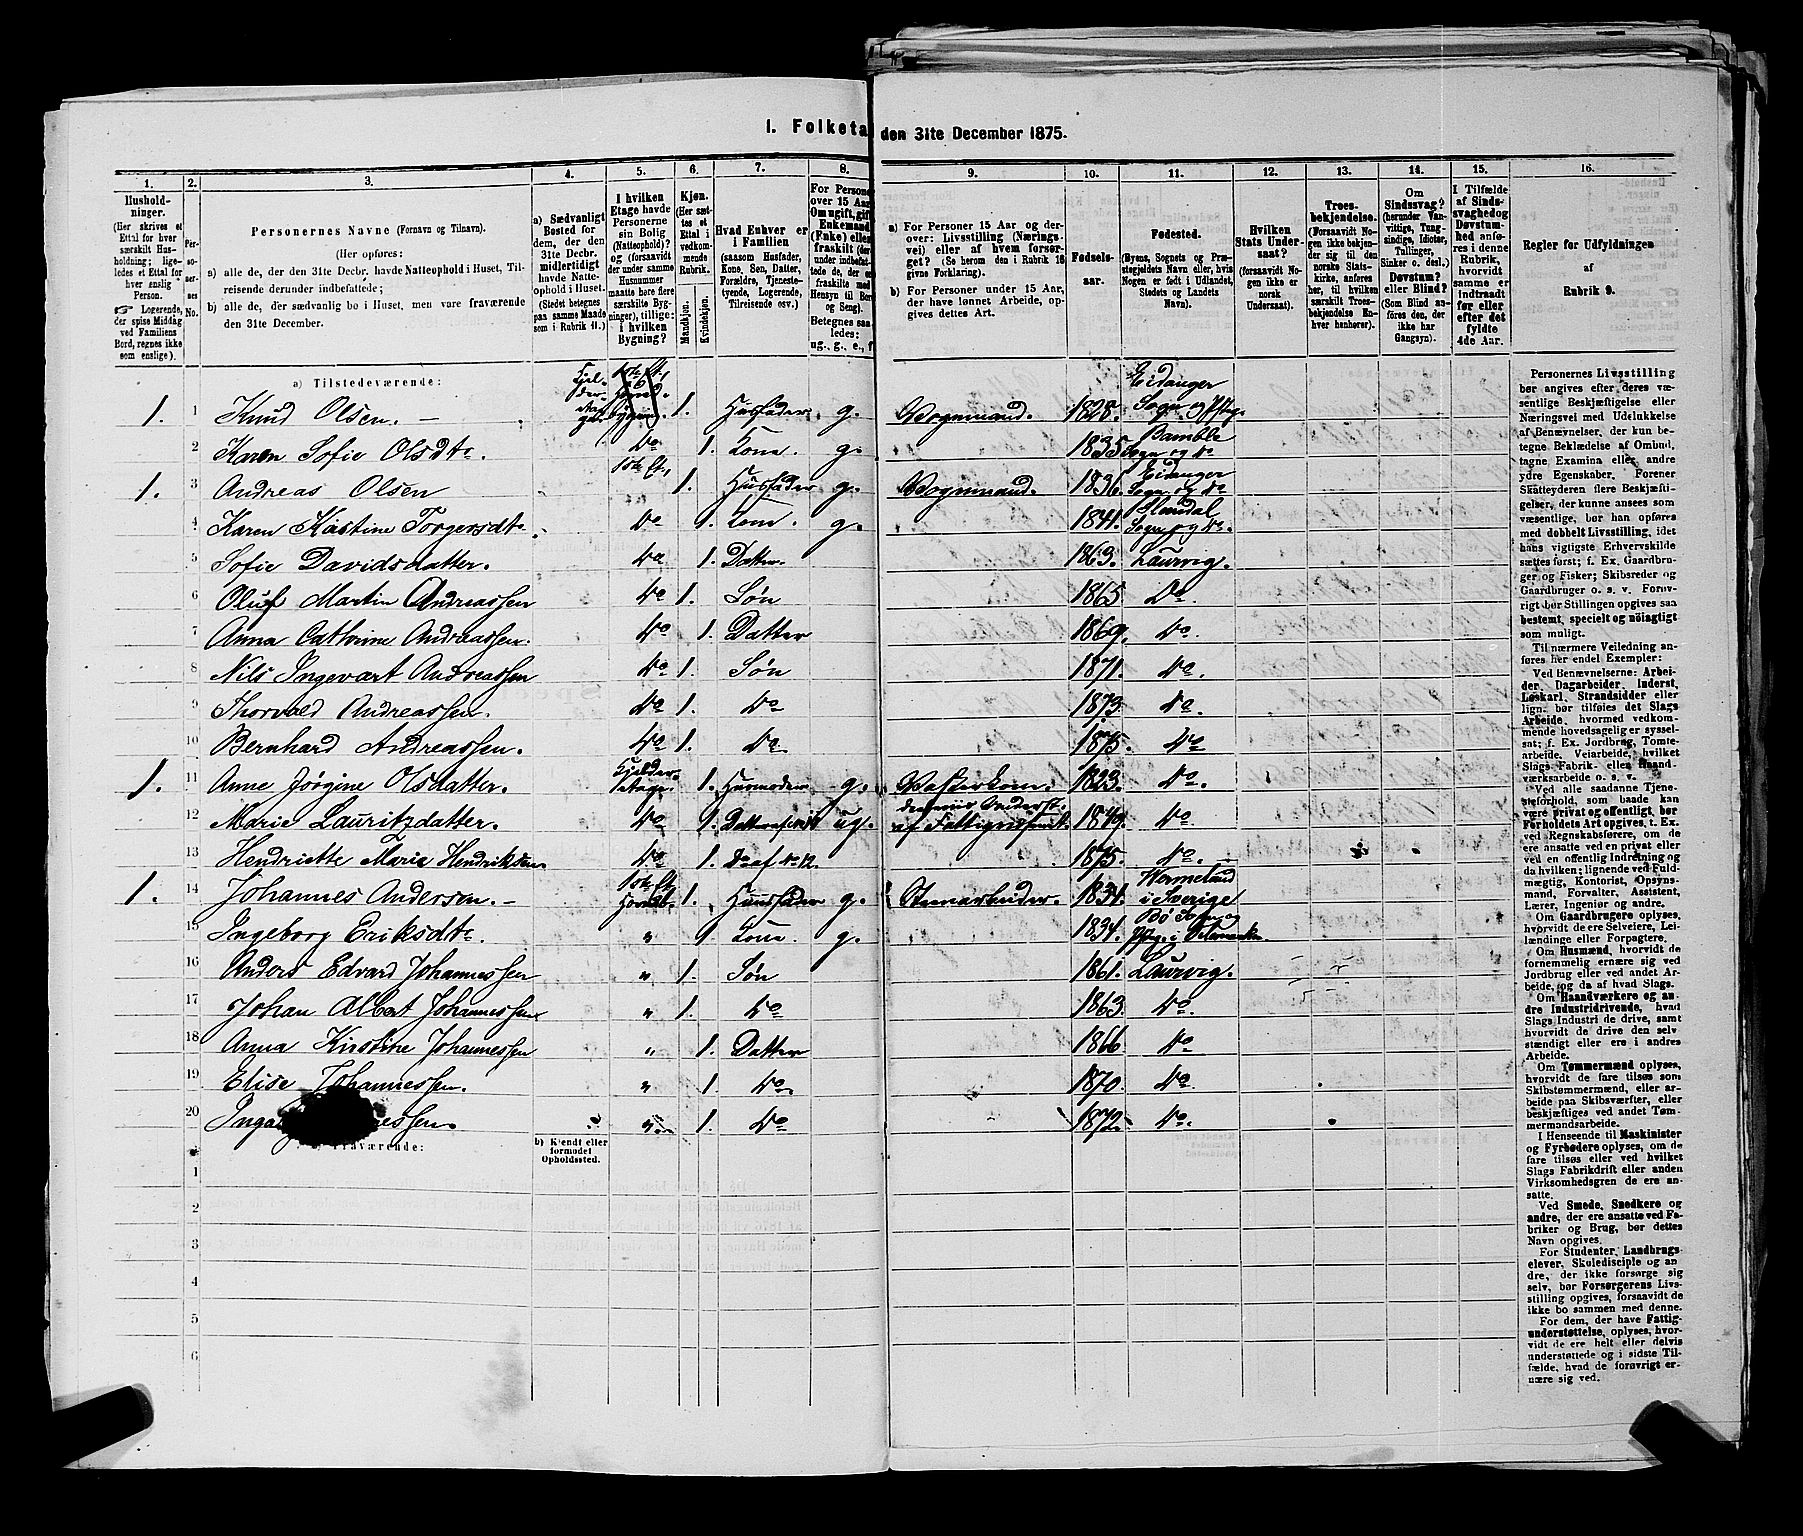 I. Folketal den 31te December 1875.
1. 2. 3. 4. 5. 6. 7. 8. 9. 10. 11. 12. 13. 14. 15. 16.
Husholdninger.
(Her skrives et
Ettal for hver
særskilt Husholdning;
ligeledes et Ettal for
hver enslig
Person.
☞ Logerende,
der spise Middag
ved Familiens
Bord, regnes ikke
som enslige).
Personernes No.
Personernes Navne (Fornavn og Tilnavn).
(Her opføres:
a) alle de, der den 31te Decbr. havde Natteophold i Huset, Tilreisende derunder indbefattede;
b) alle de, der sædvanlig bo i Huset, men vare fraværende
den 31te December.
a) Sædvanligt
Bosted for
dem, der den
31te Decbr.
midlertidigt
havde Natteophold i Huset.
(Stedet betegnes
paa samme Maade
som i Rubrik 11.)
I hvilken
Etage havde
Personerne
sin Bolig
(Natteophold)?
og (forsaavidt
der under samme
Husnummer
maatte høre flere
særskilte Bygninger), tillige:
i hvilken
Bygning?
Kjøn.
(Her sættes et
Ettal i
vedkommende
Rubrik.
Mandkjøn.
Kvindekjøn.
Hvad Enhver er
i Familien
(saasom Husfader,
Kone, Søn, Datter,
Forældre, Tjenestetyende, Logerende,
Tilreisende osv.)
a) For Personer 15 Aar og derover: Livsstilling (Næringsvei) eller af hvem forsørget? (Se herom den i Rubrik 16
givne Forklaring).
b) For Personer under 15 Aar,
der have lønnet Arbeide, opgives dettes Art.
Fødselsaar.
Fødested.
(Byens, Sognets og Præstegjeldets Navn eller, hvis
Nogen er født i Udlandet,
Stedets og Landets
Navn).
Hvilken
Stats Undersaat?
(forsaavidt Nogen ikke er
norsk
Undersaat).
Troesbekjendelse.
(Forsaavidt Nogen ikke bekjender sig til den
norske Statskirke, anføres
hvilket
særskilt Troesbekjendelse Enhver henhører).
Om
Sindssvag?
(herunder Vanvittige, Tungsindige, Idioter,
Tullinger,
Sinker o. desl.)
Døvstum?
eller Blind?
(Som Blind anføres den, der
ikke har
Gangsyn).
I Tilfælde
af Sindssvaghed og
Døvstumhed anføres i denne
Rubrik,
hvorvidt
samme er
indtraadt
før eller
efter det
fyldte
4de Aar.
Regler for Udfyldningen
af
Rubrik 9.
a) Tilstedeværende:
1. 1 Knud Olsen. 1. Husfader. g. Vognmand. 1828. Eidanger Sogn og Pftg.
2 Karen Sofie Olsdtr. Do 1. Kone. g. 1835 Bamble Sogn og Do
1. 3 Andreas Olsen 1ste Et. 1. Husfader g. Vognmand. 1836. Eidanger Sogn og Do
4 Karen Kastine Torgersdtr. Do 1. Kone. g. 1841. Slemdal Sogn og Do.
5 Sofie Davidsdatter. Do 1. Datter. 1863. Laurvig.
6 Oluf Martin Andreassen Do 1. Søn 1865 Do.
7 Anna Cathrine Andreassen. Do 1. Datter 1869. Do.
8 Nils Ingevart Andreassen Do 1. Søn 1871. Do
9 Thorvald Andreassen. Do 1. Do 1873. Do.
10 Bernhard Andreassen. Do 1. Do. 1875. Do
1. 11 Anne Jørgine Olsdatter. Kjelder-Etage. 1. Husmoder g. Vaskerkone. 1823. Do.
12 Marie Lauritzdatter. Do 1. Datter af No 11 ug. af Fattigvæsenet. 1849. Do.
13 Hendriette Marie Hendriksen Do 1. Do af No 12. 1875. Do.
1. 14 Johannes Andersen. 1ste Et. 1. Huusfader g. Stenarbeider. 1834. Wermeland i Sverige
15 Ingeborg Eriksdtr. " 1 Kone. g. 1834. Bø Sogn og Pftg. i Telemarken
16 Anders Edvard Johannessen " 1. Søn 1861. Laurvig.
17 Johan Albert Johannessen " 1. Do 1863. Do.
18 Anna Kirstine Johannessen " 1. Datter 1866. Do
19 Elise Johannessen. " 1. Do. 1870. Do
20 " 1. Do 1872. Do.
b) Fraværende:
b) Kjendt eller
formodet
Opholdssted.
1
2
3
4
5
6
Personernes Livsstilling
bør angives efter deres væsentlige Beskjæftigelse eller
Næringsvei med Udelukkelse
af Benævnelser, der kun betegne Beklædelse af Ombud,
tagne Examina eller andre
ydre Egenskaber. Forener
Skatteyderen flere Beskjæftigelser, der kunne ansees som
væsentlige, bør han opføres
med dobbelt Livsstilling, idet
hans vigtigste Erhvervskilde
sættes først; f. Ex. Gaardbruger og Fisker; Skibsreder og
Gaardbruger o. s. v. Forøvrigt bør Stillingen opgives saa
bestemt, specielt og nøiagtigt
som muligt.
Til nærmere Veiledning anføres her endel Exempler:
Ved Benævnelserne: Arbeider, Dagarbeider, Inderst,
Løskarl, Strandsidder eller
lign. bør tilføies det Slags
Arbeide, hvormed vedkommende hovedsagelig er sysselsat; f. Ex. Jordbrug, Tomtearbeide, Veiarbeide, hvilket
Slags Fabrik- eller Haandværksarbeide o. s. v.
Ved alle saadanne Tjenesteforhold, som baade kan
være privat og offentligt, bør
Forholdets Art opgives, t. Ex.
ved Regnskabsførere, om de
ere ansatte ved en privat eller
ved en offentlig Indretning og
da hvilken; lignende ved Fuldmægtig, Kontorist, Opsynsmand, Forvalter, Assistent,
Lærer, Ingeniør og andre.
Om Gaardbrugere oplyses,
hvorvidt de ere Selveiere, Leilændinge eller Forpagtere.
Om Husmænd, hvorvidt de
fornemmelig ernære sig ved
Jordbrug eller ved andet Arbeide, og da af hvad Slags.
Om Haandværkere og andre Industridrivende, hvad
Slags Industri de drive, samt
hvorvidt de drive den selvstændigt eller ere i andres
Arbeide.
Om Tømmermænd oplyses,
hvorvidt de fare tilsøs som
Skibstømmermænd, eller arbeide paa Skibsværfter, eller
beskjæftiges ved andet Tømmermandsarbeide.
I Henseende til Maskinister
og Fyrbødere oplyses, om de
fare tilsøs eller ved hvilket
Slags Fabrikdrift eller anden
Virksomhedsgren de ere ansatte.
Ved Smede, Snedkere og
andre, der ere ansatte ved Fabriker og Brug, bør dettes
Navn opgives.
For Studenter, Landbrugselever, Skoledisciple og andre, der ikke forsørge sig
selv, bør Forsørgerens Livsstilling opgives, forsaavidt de
ikke bo sammen med denne.
For dem, der have Fattigunderstøttelse, oplyses, hvorvidt de ere helt eller delvis
understøttede og i sidste Tilfælde, hvad de forøvrigt ernære sig ved.